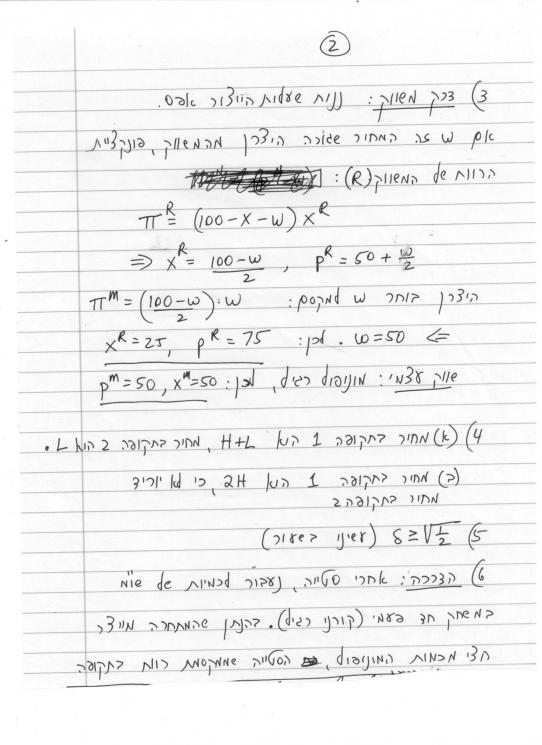 2
3) דרך משווק: נניח שעלות הייצור אפס.
אם w זה המחיר שגובה היצרן מהמשווק, פונקציית
הרווח של המשווק (R):
π^R = (100-X-w) X^R
⇒ X^R = (100-w)/2 , P^R = 50 + w/2
היצרן בוחר w למקסם: π^m = ((100-w)/2)·w
⇐ w=50. לכן: X^R=25, P^R=75
שווק עצמי: מונופול רגיל, לכן: P^m=50, X^m=50
4) (א) מחיר בתקופה 1 הוא H+L, מחיר בתקופה 2 הוא L.
(ב) מחיר בתקופה 1 הוא 2H, כי לא יוריד
מחיר בתקופה 2
5) δ ≥ √(1/2) (עשינו בשעור)
6) הדרכה: אחרי סטייה, נעבור לכמויות של שו"מ
במשחק חד פעמי (קורנו רגיל). בהנתן שהמתחרה מייצר
חצי מכמות המונופול, הסטייה שממקסמת רווח בתקופה